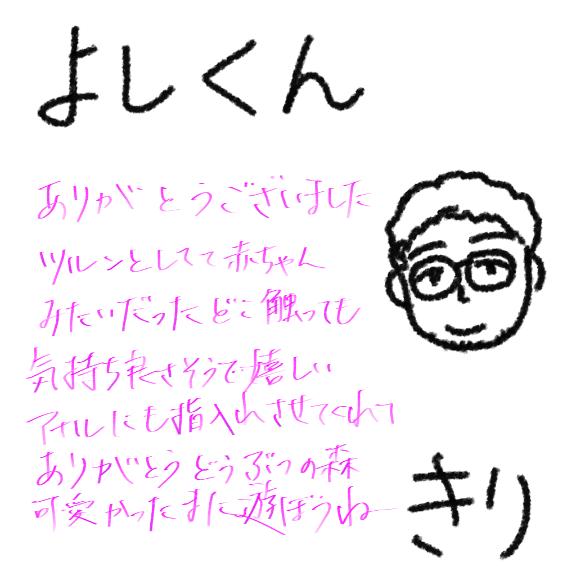 よしくん
ありがとうございました
ツルンとしてて赤ちゃん
みたいだったどこ触っても
気持ち良さそうで嬉しい
アナルにも指入れさせてくれて
ありがとうどうぶつの森
可愛かったまた遊ぼうね
きり